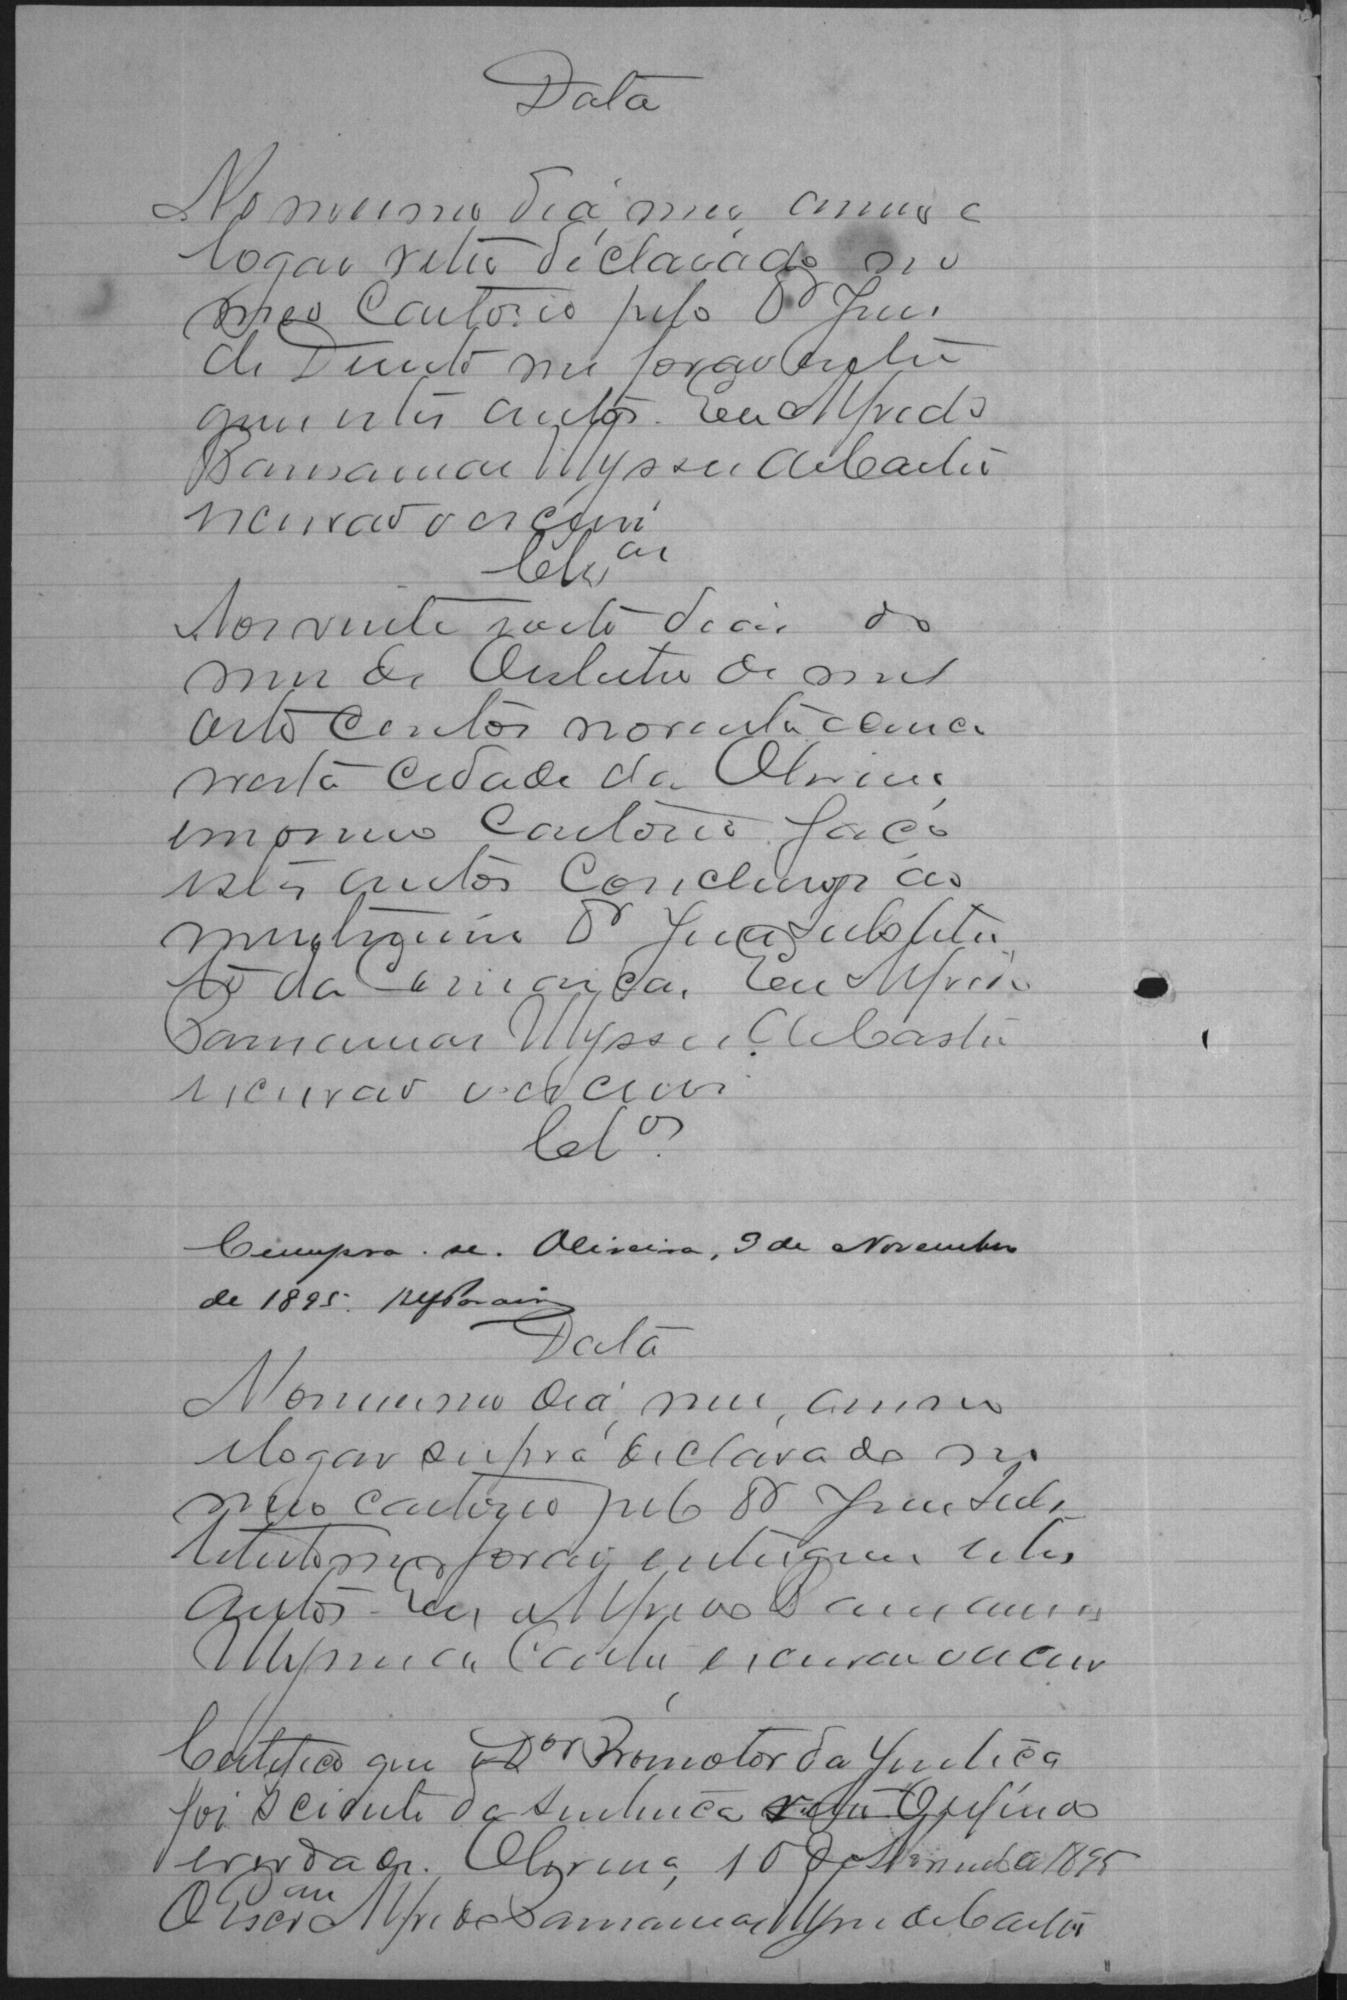 Data
No mesmo dia, mes, anno e
logar retro declarado no
meo Cartorio pelo Dr Juis
de Direito me forão entre
gues estes autos. Eu Alfredo
Ulysses de Castro
escrivão o escrevi
Clsos
Aos vinte e oito dias do
mes de Outubro de mil
oito centos noventa e cinco
nesta Cidade da Oliveira
em o meo Cartorio faço
estes autos Conclusos ao
meretissimo Dr Juis Substitu
to da Comarca. Eu Alfredo
Ulysses de Castro
escrivão o escrevi
Clos
Cumpra-se. Oliveira, 9 de Novembro
de 1895.
Data
No mesmo dia, mes, anno
e logar supra declarado no
meo cartorio pelo Dr Juis Subs
tituto me forão entregues estes
autos. Eu, Alfredo
Ulysses de Castro escrivão o escrevi
Certifico que o Dor Promotor da Justiça
foi sciente da sentença retro O referido
é verdade. Oliveira, 10 de Novembro 1895
O Escram Alfredo Ulysses de Castro